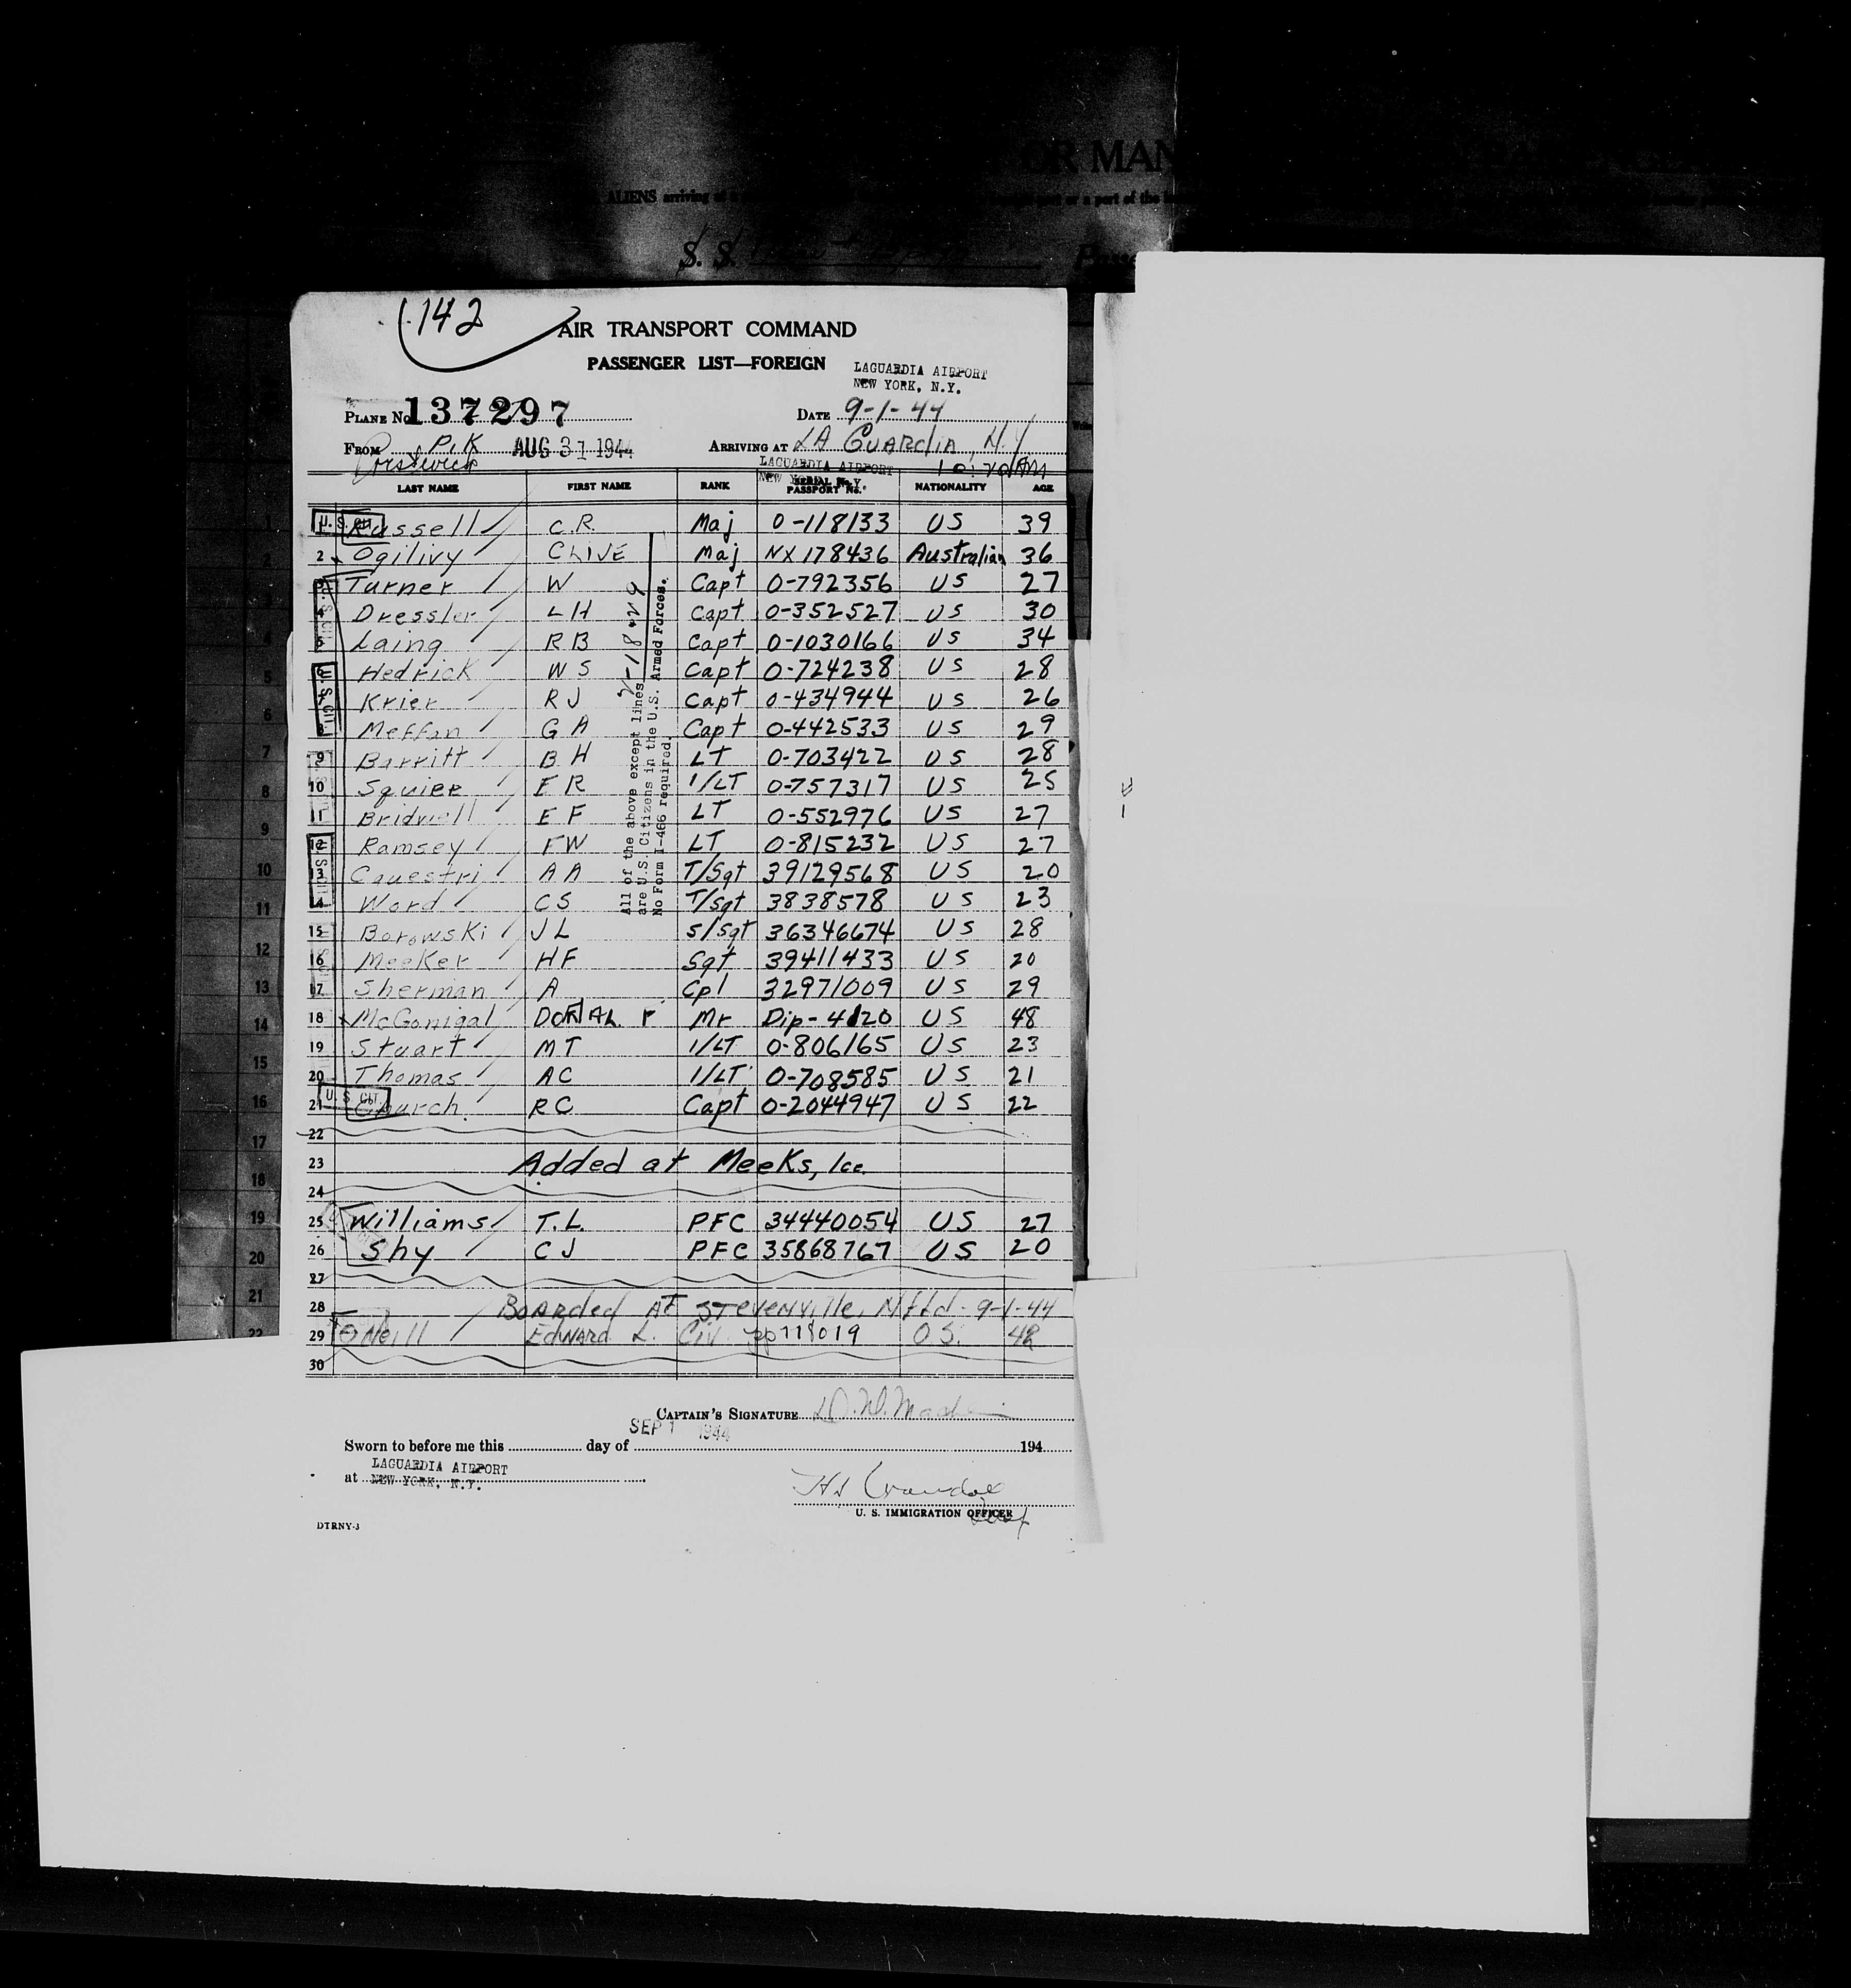 OR MAN
ALIENS arriving at a
port or a part of the
S. S.
142
AIR TRANSPORT COMMAND
PASSENGER LIST—FOREIGN
LAGUARDIA AIRPORT
NEW YORK, N.Y.
PLANE No. 137297 DATE 9-1-44
FROM P.I.K AUG 31 1944 ARRIVING AT LA GUARDIA, N.Y
Prestwick LAGUARDIA AIRPORT 10:20AM
NEW YORK, N.Y.
LAST NAME FIRST NAME RANK SERIAL No. PASSPORT No. NATIONALITY AGE
1 U. S. CIT. Russell C.R. Maj O-118133 US 39
2 x Ogilivy CLIVE Maj NX 178436 Australian 36
3 Turner W Capt O-792356 US 27
4 Dressler L H Capt O-352527 US 30
5 Laing R B Capt O-1030166 US 34
6 Hedrick W S Capt O-724238 US 28
7 Krier R J Capt O-434944 US 26
8 Meffan G A Capt O-442533 US 29
9 Barritt B H LT O-703422 US 28
10 Squier E R 1/LT O-757317 US 25
11 Bridwell E F LT O-552976 US 27
12 Ramsey F W LT O-815232 US 27
13 Cquestri A A T/Sgt 39129568 US 20
14 Word C S T/Sgt 3838578 US 23
15 Borowski J L S/Sgt 36346674 US 28
16 Meeker H F Sgt 39411433 US 20
17 Sherman A Cpl 32971009 US 29
18 x McGonigal DONAL F Mr Dip-4120 US 48
19 Stuart M T 1/LT O-806165 US 23
20 Thomas A C 1/LT O-708585 US 21
21 U. S. CIT. Church R C Capt O-2044947 US 22
22
23 Added at Meeks, Ice.
24
25 Williams T. L. PFC 34440054 US 27
26 Shy C J PFC 35868767 US 20
27
28 BOARDED AT STEVENVILLE, Nfld - 9-1-44
29 O'Neill EDWARD L. Civ. pp 118019 U.S. 42
30
All of the above except lines 2-18 & 29
are U.S. Citizens in the U.S. Armed Forces.
No Form I-466 required.
CAPTAIN'S SIGNATURE
SEP 1 1944
Sworn to before me this day of 194
LAGUARDIA AIRPORT
at NEW YORK, N.Y.
U. S. IMMIGRATION OFFICER
DTRNY-3